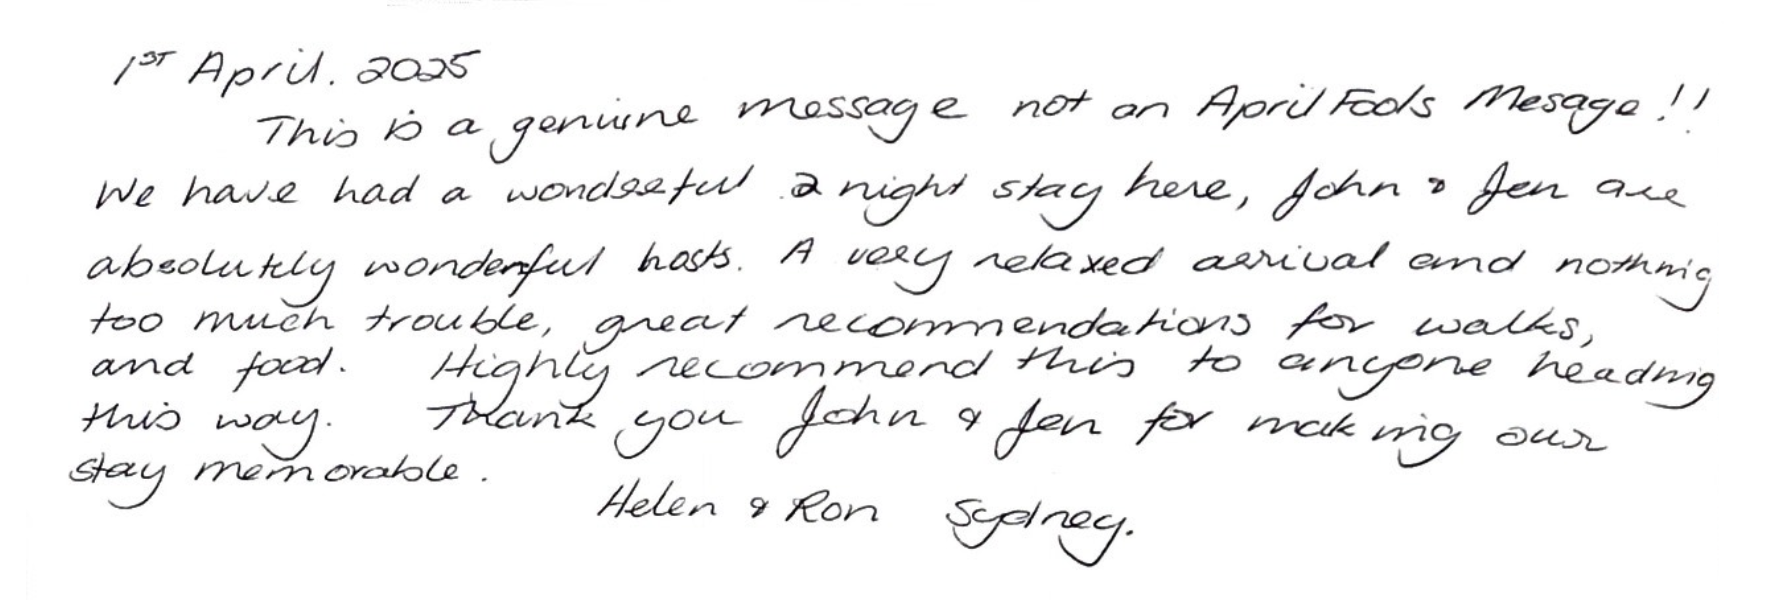 1ST April. 2025
This is a genuine message not an April Fools Mesage!!
We have had a wonderful 2 night stay here, John & Jen are
absolutely wonderful hosts. A very relaxed arrival and nothing
too much trouble, great recommendations for walks,
and food. Highly recommend this to anyone heading
this way. Thank you John & Jen for making our
stay memorable.
Helen & Ron Sydney.